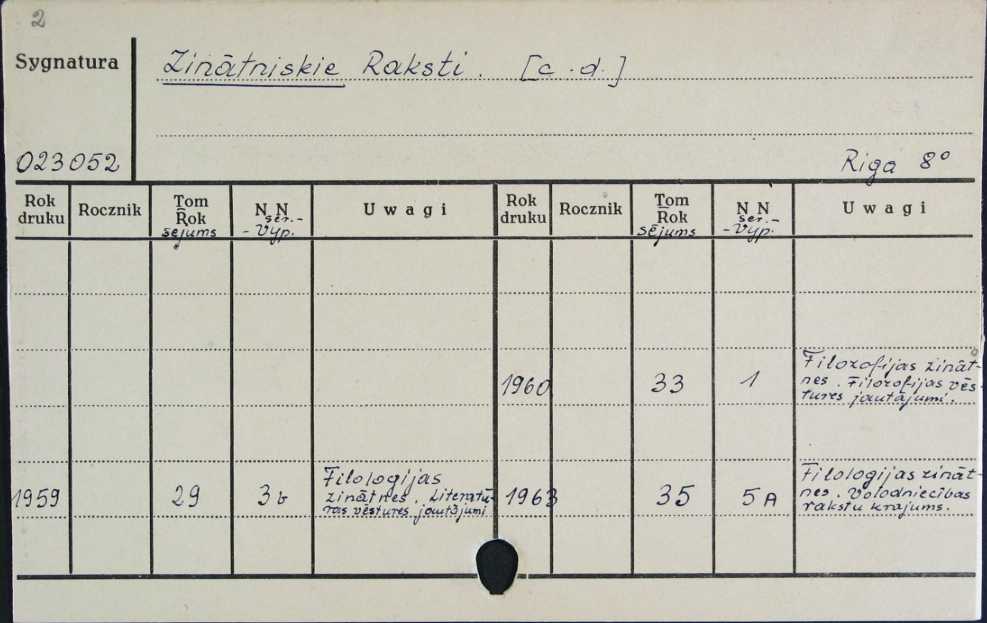 2
Sygnatura
Zinātniskie Raksti. [c.d.]
023052
Riga 8°
Rok druku
Rocznik
Tom
Rok
sējums
N N
ser.-
-Vyp.
Uwagi
Rok druku
Rocznik
Tom
Rok
sējums
N N
ser.-
-Vyp.
Uwagi
1960 33 1 Filozofijas zināt-
nes. Filozofijas vēs-
tures jautājumi.
1959 29 3b Filologijas
zinātnes. Literatū-
ras vēstures jautājumi
1963 35 5A Filologijas zināt-
nes. Valodniecības
rakstu krājums.